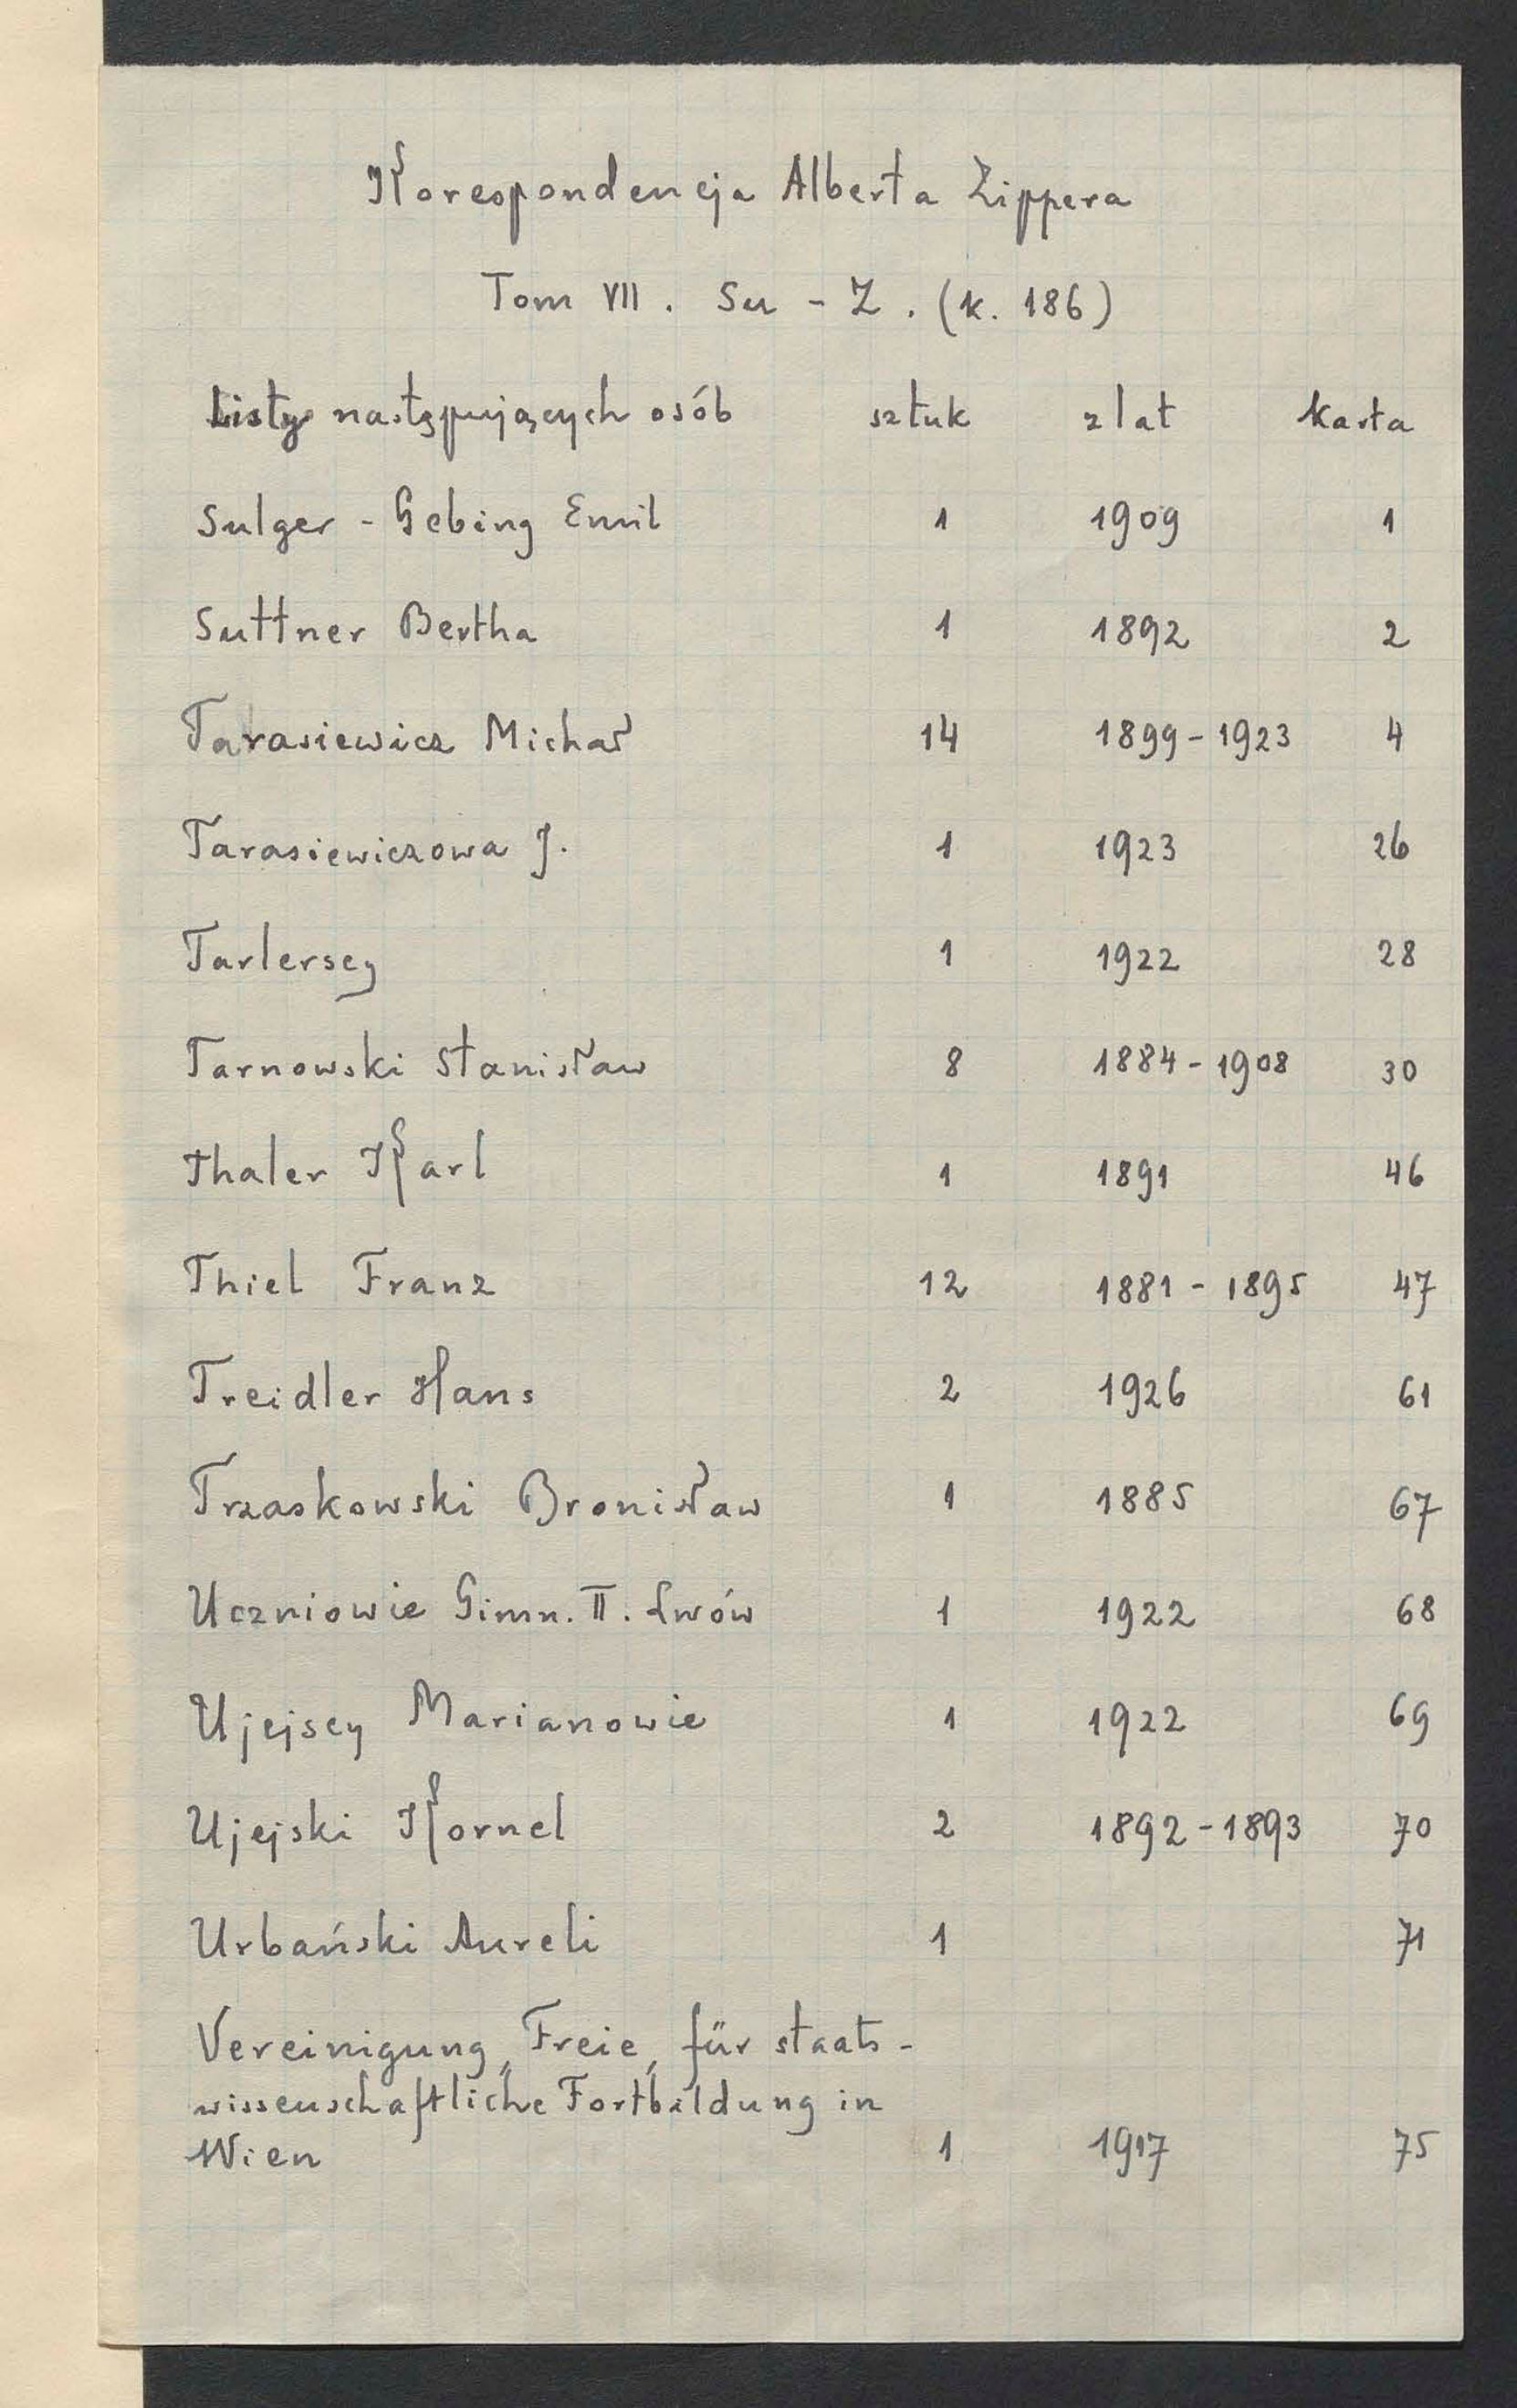 Korespondencja Alberta Zippera
Tom VII. Su - Z. (k. 186)
Listy następujących osób sztuk z lat karta
Sulger - Gebing Emil 1 1909 1
Suttner Bertha 1 1892 2
Tarasiewicz Michał 14 1899-1923 4
Tarasiewiczowa J. 1 1923 26
Tarlerscy 1 1922 28
Tarnowski Stanisław 8 1884-1908 30
Thaler Karl 1 1891 46
Thiel Franz 12 1881-1895 47
Treidler Hans 2 1926 61
Trzaskowski Bronisław 1 1885 67
Uczniowie Gimn. II. Lwów 1 1922 68
Ujejscy Marianowie 1 1922 69
Ujejski Kornel 2 1892-1893 70
Urbański Aureli 1 71
Vereinigung, Freie, für staats-
wissenschaftliche Fortbildung in
Wien 1 1917 75